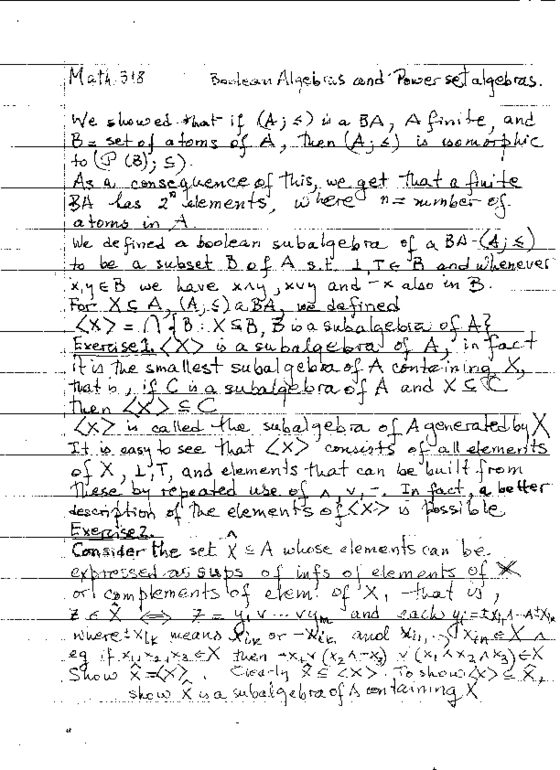 Math 318 Boolean Algebras and Power set algebras.
We showed that if (A; ≤) is a BA, A finite, and
B = set of atoms of A, then (A; ≤) is isomorphic
to (P(B); ⊆).
As a consequence of this, we get that a finite
BA has 2ⁿ elements, where n = number of
atoms in A.
We defined a boolean subalgebra of a BA (A; ≤)
to be a subset B of A s.t. ⊥, T ∈ B and whenever
x, y ∈ B we have x∧y, x∨y and -x also in B.
For X ⊆ A, (A; ≤) a BA, we defined
<X> = ⋂{B : X ⊆ B, B is a subalgebra of A}
Exercise 1. <X> is a subalgebra of A, in fact
it is the smallest subalgebra of A containing X,
that is, if C is a subalgebra of A and X ⊆ C
then <X> ⊆ C
<X> is called the subalgebra of A generated by X
It is easy to see that <X> consists of all elements
of X, ⊥, T, and elements that can be built from
these by repeated use of ∧, ∨, -. In fact, a better
description of the elements of <X> is possible
Exercise 2.
Consider the set X̂ ⊆ A whose elements can be
expressed as sups of infs of elements of X
or complements of elem. of X, that is,
z ∈ X̂ ⟺ z = y₁ ∨ ... ∨ yₘ and each yᵢ = ±xᵢ₁ ∧ ... ∧ ±xᵢₖ
where ±xᵢₖ means xᵢₖ or -xᵢₖ and xᵢ₁, ..., xᵢₙ ∈ X
eg if x₁, x₂, x₃ ∈ X then -x₁ ∨ (x₂ ∧ -x₃) ∨ (x₁ ∧ x₂ ∧ x₃) ∈ X̂
Show X̂ = <X>. Clearly X̂ ⊆ <X>. To show <X> ⊆ X̂,
show X̂ is a subalgebra of A containing X